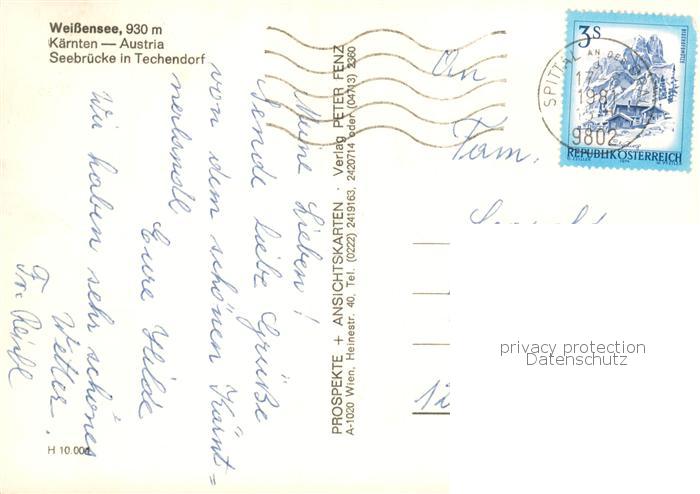 Weißensee, 930 m
Kärnten — Austria
Seebrücke in Techendorf
Meine Lieben!
Sende liebe Grüße
von dem schönen Kärnt=
nerland
Eure Hilde
Wir haben sehr schönes
Wetter.
Fr.
H 10.004
PROSPEKTE + ANSICHTSKARTEN · Verlag PETER FENZ
A-1020 Wien, Heinestr. 40, Tel. (0222) 2419163, 2420714 oder (04713) 2360
An
Fam.
12
3 S
REPUBLIK ÖSTERREICH
SPITTAL AN DER
1981
9802
privacy protection
Datenschutz